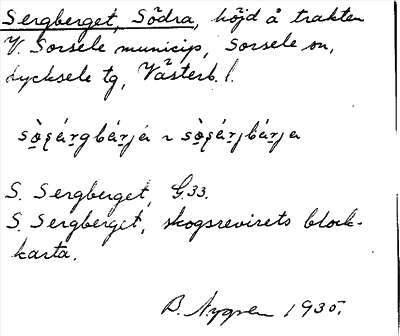 Sergberget, Södra, höjd å trakten
V. Sorsele municip, Sorsele sn,
Lycksele tg, Västerb. l.
sò̱ʂárgbárjá ~ sò̱ʂárjbárja
S. Sergberget, G.33.
S. Sergberget, skogsrevirets block-
karta.
B. Nygren 1935.